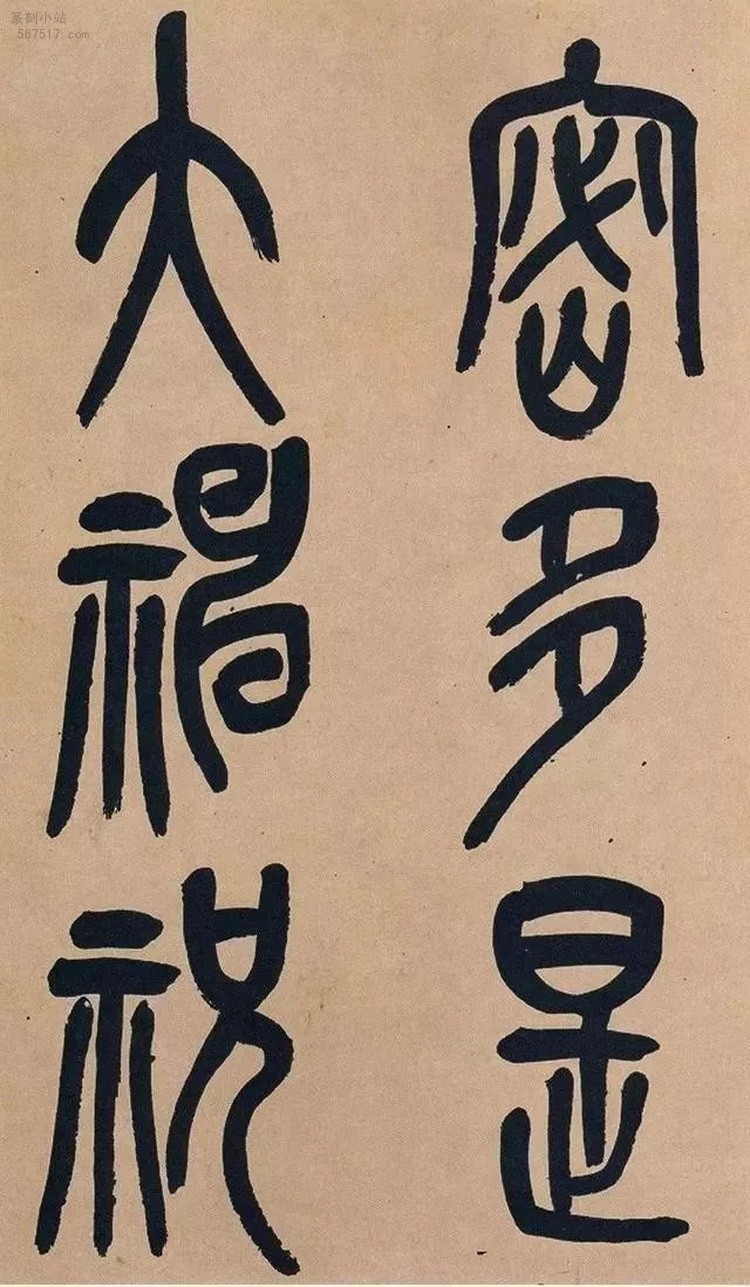 篆刻小站
567517.com
密多是
大神祝